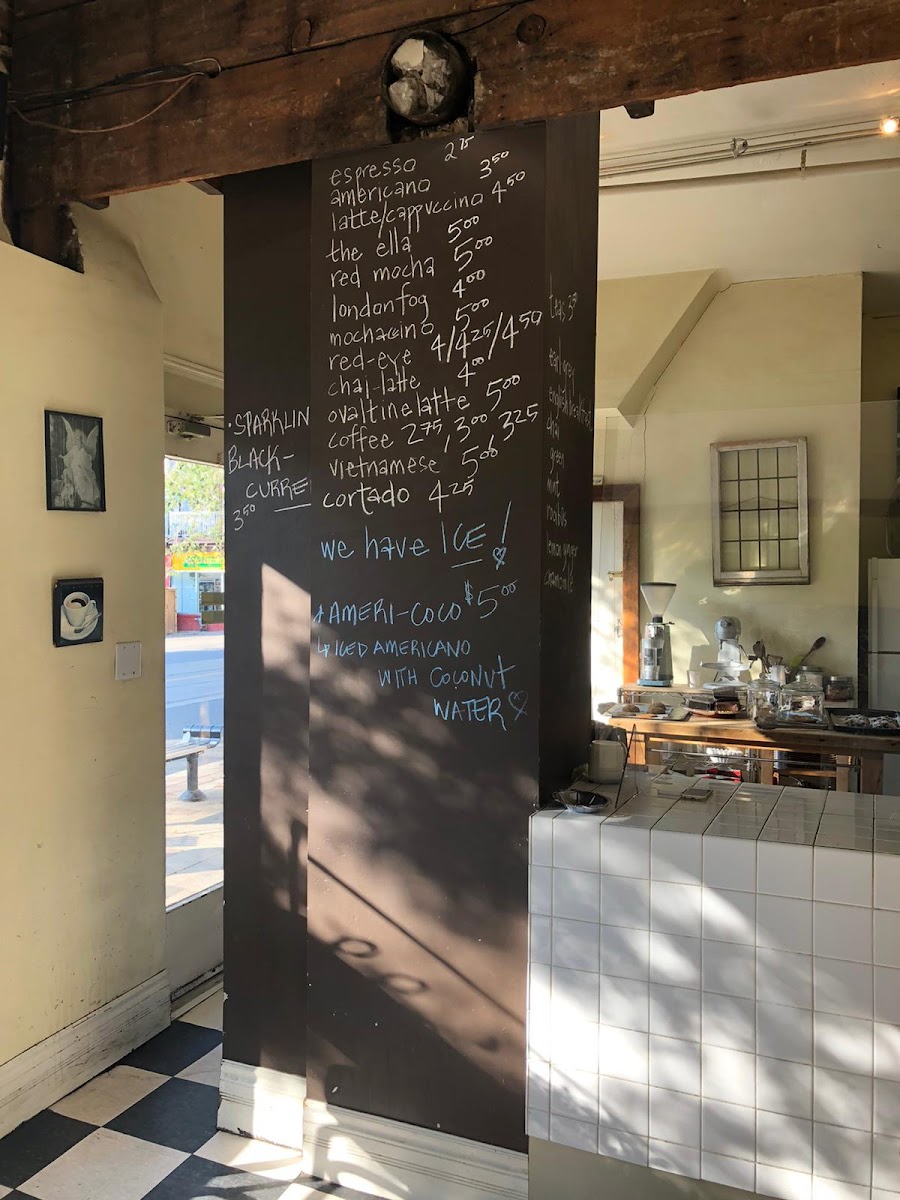 espresso 2 75
americano 3 50
latte/cappuccino 4 50
the ella 5 00
red mocha 5 00
london fog 4 00
mochaccino 5 00
red-eye 4/4 25/4 50
chai-latte 4 00
ovaltine latte 5 00
coffee 2 75, 3 00, 3 25
vietnamese 5 00
cortado 4 25
we have ICE!
AMERI-COCO $5 00
ICED AMERICANO
WITH COCONUT
WATER
·SPARKLIN
BLACK-
CURRE
3 50
teas 3 50
earl grey
english breakfast
chai
green
mint
rooibos
lemon ginger
chamomile